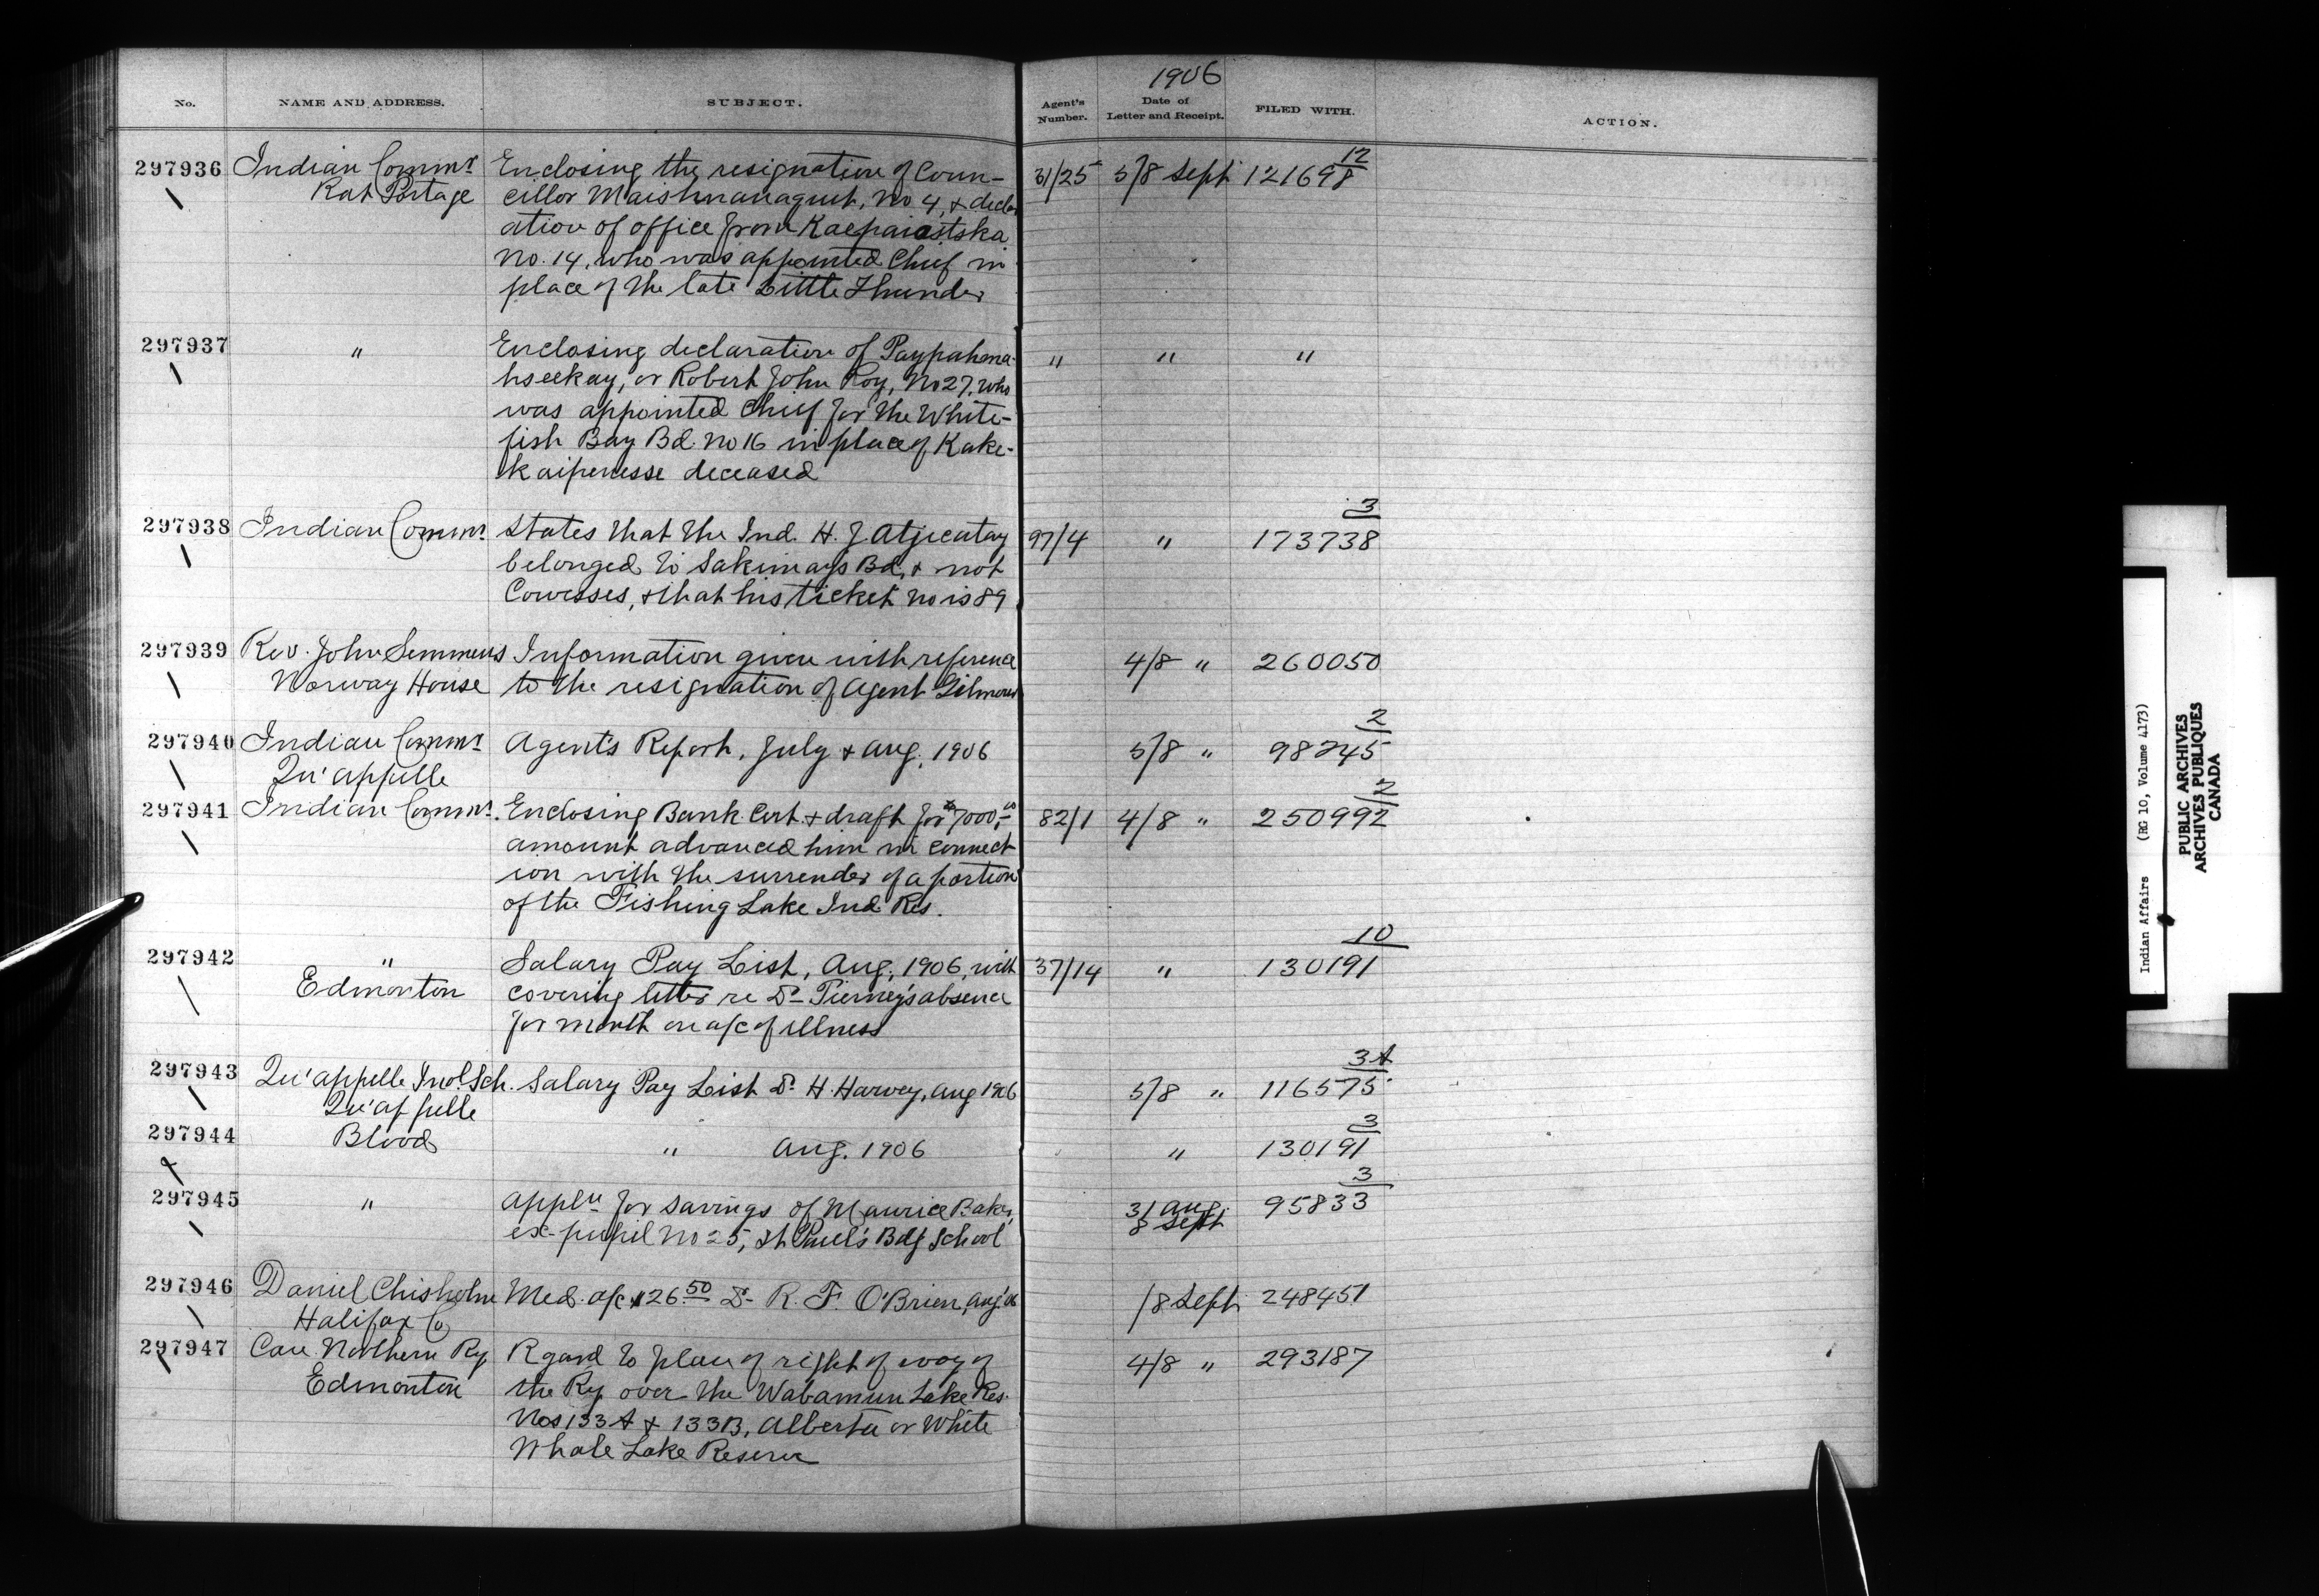 1906
No. NAME AND ADDRESS. SUBJECT. Agent's Number. Date of Letter and Receipt. FILED WITH. ACTION.
297936 Indian Commr Enclosing the resignation of Coun- 31/25 5/8 Sept 121698 12
Rat Portage cillor No 4, & declar
ation of office from
No. 14, who was appointed Chief in
place of the late Little Thunder
297937 " Enclosing declaration of Paypahena- " " "
hseekay, or Robert John Roy, No 27, who
was appointed Chief for the White-
fish Bay Bd. No 16 in place of Kake-
kaipenesse deceased
297938 Indian Commr States that the Ind. H. J. 97/4 " 173738 3
belonged to Sakimays Bd, & not
Cowesses, & that his ticket no is 89
297939 Rev. John Semmens Information given with reference 4/8 " 260050
Norway House to the resignation of Agent
297940 Indian Commr Agent's Report, July & Aug, 1906 5/8 " 98245 2
Qu'appelle
297941 Indian Commr. Enclosing Bank Cert. & draft for $7000.00 82/1 4/8 " 250992 2
amount advanced him in connect
ion with the surrender of a portion
of the Fishing Lake Ind Res.
297942 " Salary Pay List, Aug, 1906, with 37/14 " 130191 10
Edmonton covering letter re Dr Tierney's absence
for month on a/c of illness
297943 Qu'appelle Indl. Sch. Salary Pay List Dr H. Harvey, Aug 1906 5/8 " 116575 3A
Qu'appelle
297944 Blood " Aug. 1906 " 130191 3
297945 " Appln for savings of Maurice Baker, 31 Aug. 95833 3
ex-pupil No 25, St Paul's Bdg School 8 Sept
297946 Daniel Chisholm Med. a/c $26.50 Dr R. F. O'Brien, Aug '06 /8 Sept 248451
Halifax Co
297947 Can. Northern Ry Rgard to plan of right of way of 4/8 " 293187
Edmonton the Ry over the Wabamun Lake Res.
Nos 133A & 133B, Alberta or White
Whale Lake Reserve
Indian Affairs (RG 10, Volume 4173)
PUBLIC ARCHIVES
ARCHIVES PUBLIQUES
CANADA